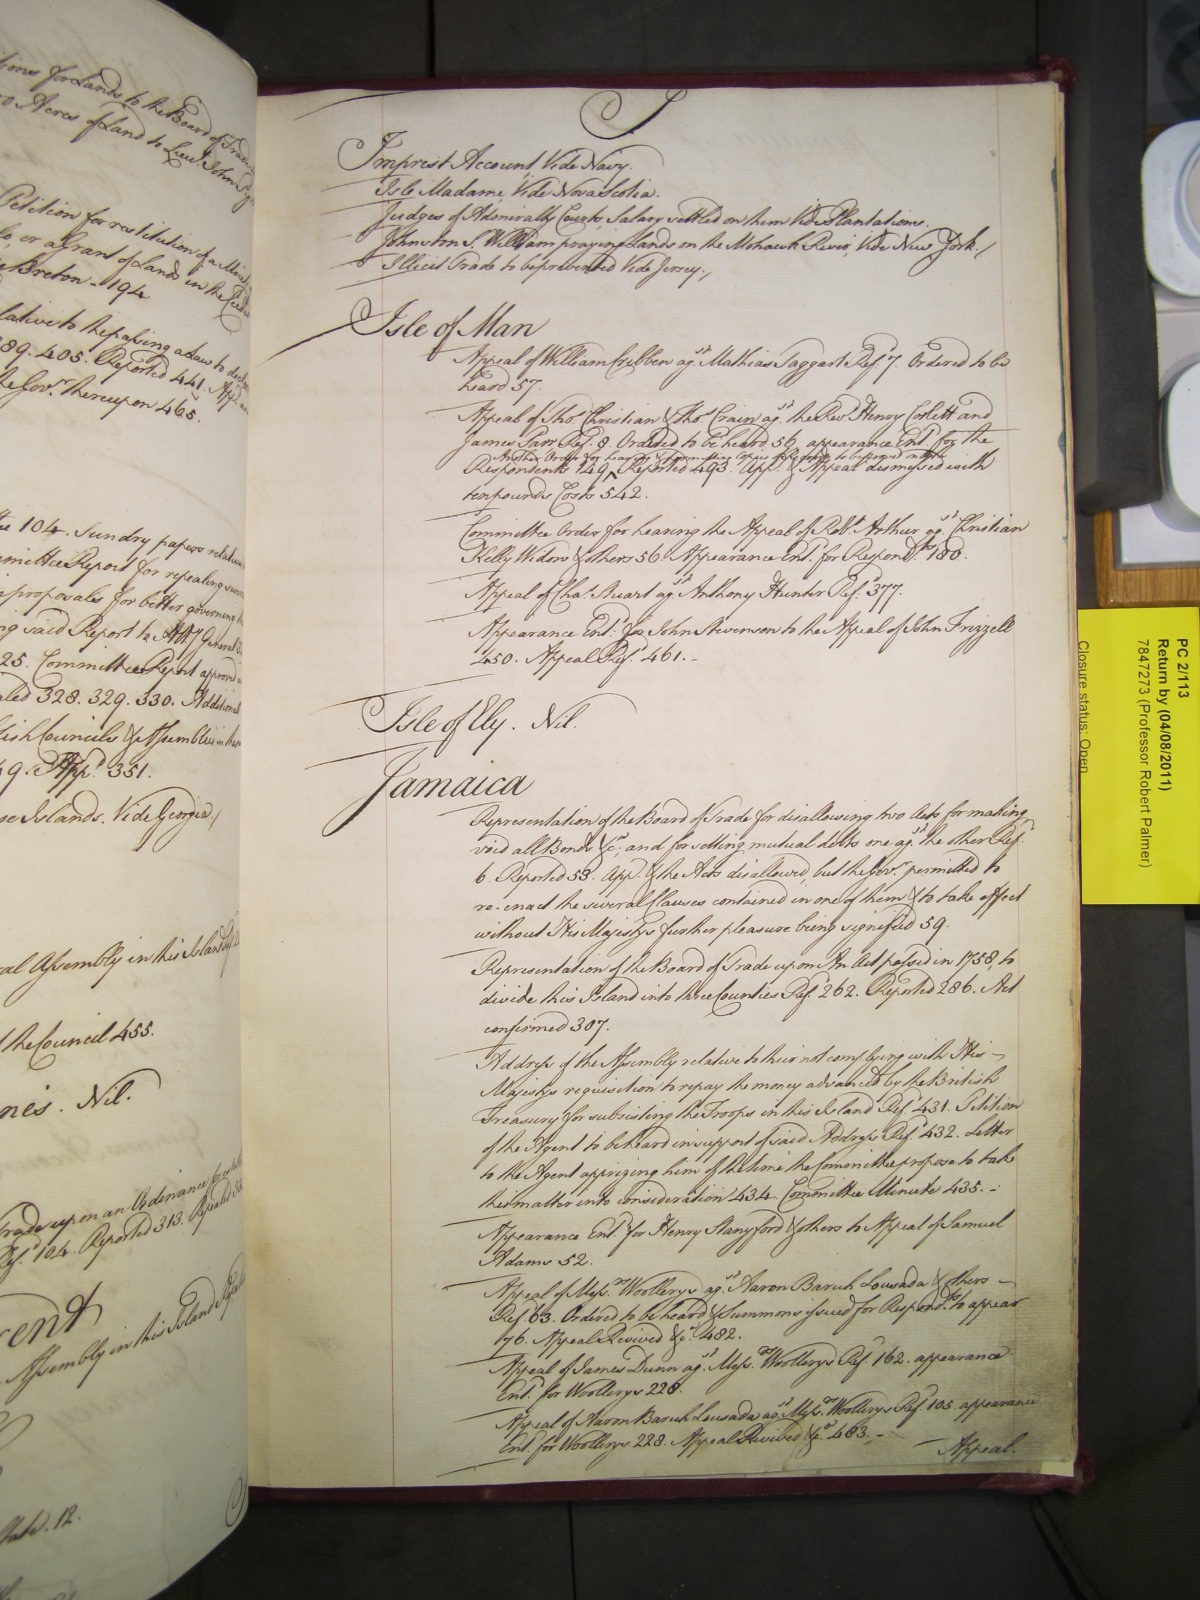 tions for Lands to the Board of Trade
Acres of Land to Lieut. John
Petition for restitution of a
or a Grant of Lands in the
Breton - 194
lative to the passing a Law to
89. 405. Reported 441. App.
the Govr. thereupon 465.
104. Sundry papers relative
Committee Report for repealing
proposals for better governing
said Report to Atty General
25. Committee Report approved
328. 329. 330. Additional
Councils & Assemblies in
49. Appd. 351.
Islands. Vide Georgia
al Assembly in this Island
the Council 455.
nes. Nil.
Trade upon an Ordinance
Refd. 104. Reported 313. Repealed
cent
Assembly in this Island
12.
I
Imprest Account Vide Navy.
Isle Madame, Vide Nova Scotia.
Judges of Admiralty Courts Salary settled on them Vide Plantations.
Johnston Sr. William praying Lands on the Mohawk River, Vide New York.
Illicit Trade to be prevented Vide Jersey.
Isle of Man
Appeal of William Cribben agst. Mathias Taggart Refd. 7. Ordered to be
heard 57.
Appeal of Thos. Christian & Thos. Crain agst. the Revd. Henry Corlett and
James Parr Refd. 8. Ordered to be heard 56, appearance Entd. for the
Another Order for hearing & Committee
Respondents 149 Reported 493. Appd. & Appeal dismissed with
ten pounds Costs 542.
Committee Order for hearing the Appeal of Robt. Arthur agst. Christian
Kelly Widow & others 56. Appearance Entd. for Respondts. 180.
Appeal of Chas. Stuart agst. Anthony Hunter Refd. 377.
Appearance Entd. for John Stevenson to the Appeal of John Frizzell
450. Appeal Refd. 461. -
Isle of Ely. Nil.
Jamaica
Representation of the Board of Trade for disallowing two Acts for making
void all Bonds &c. and for setting mutual debts one agst. the other Refd.
6. Reported 58. Appd. & the Acts disallowed, but the Govr. permitted to
re-enact the several Clauses contained in one of them & to take effect
without His Majestys further pleasure being signified 59.
Representation of the Board of Trade upon An Act passed in 1758, to
divide this Island into three Counties Refd. 262. Reported 286. Act
confirmed 307.
Address of the Assembly relative to their not complying with His -
Majestys requisition to repay the money advanced by the British
Treasury for subsisting the Troops in this Island Refd. 431. Petition
of the Agent to be heard in support of said Address Refd. 432. Letter
to the Agent apprizing him of the time the Committee propose to take
the matter into consideration 434. Committee Minute 435. -
Appearance Entd. for Henry Stanyford & others to Appeal of Samuel
Adams 52.
Appeal of Messrs. Woollerys agst. Aaron Baruh Lousada & others -
Refd. 63. Ordered to be heard & Summons issued for Respondts. to appear
176. Appeal Revived &c. 482.
Appeal of James Dunn agst. Messrs. Woollerys Refd. 162. appearance
Entd. for Woollerys 228.
Appeal of Aaron Baruh Lousada agst. Messrs. Woollerys Refd. 105. appearance
Entd. for Woollerys 228. Appeal Revived &c. 483. -
Appeal.
PC 2/113
Return by (04/08/2011)
7847273 (Professor Robert Palmer)
Closure status: Open